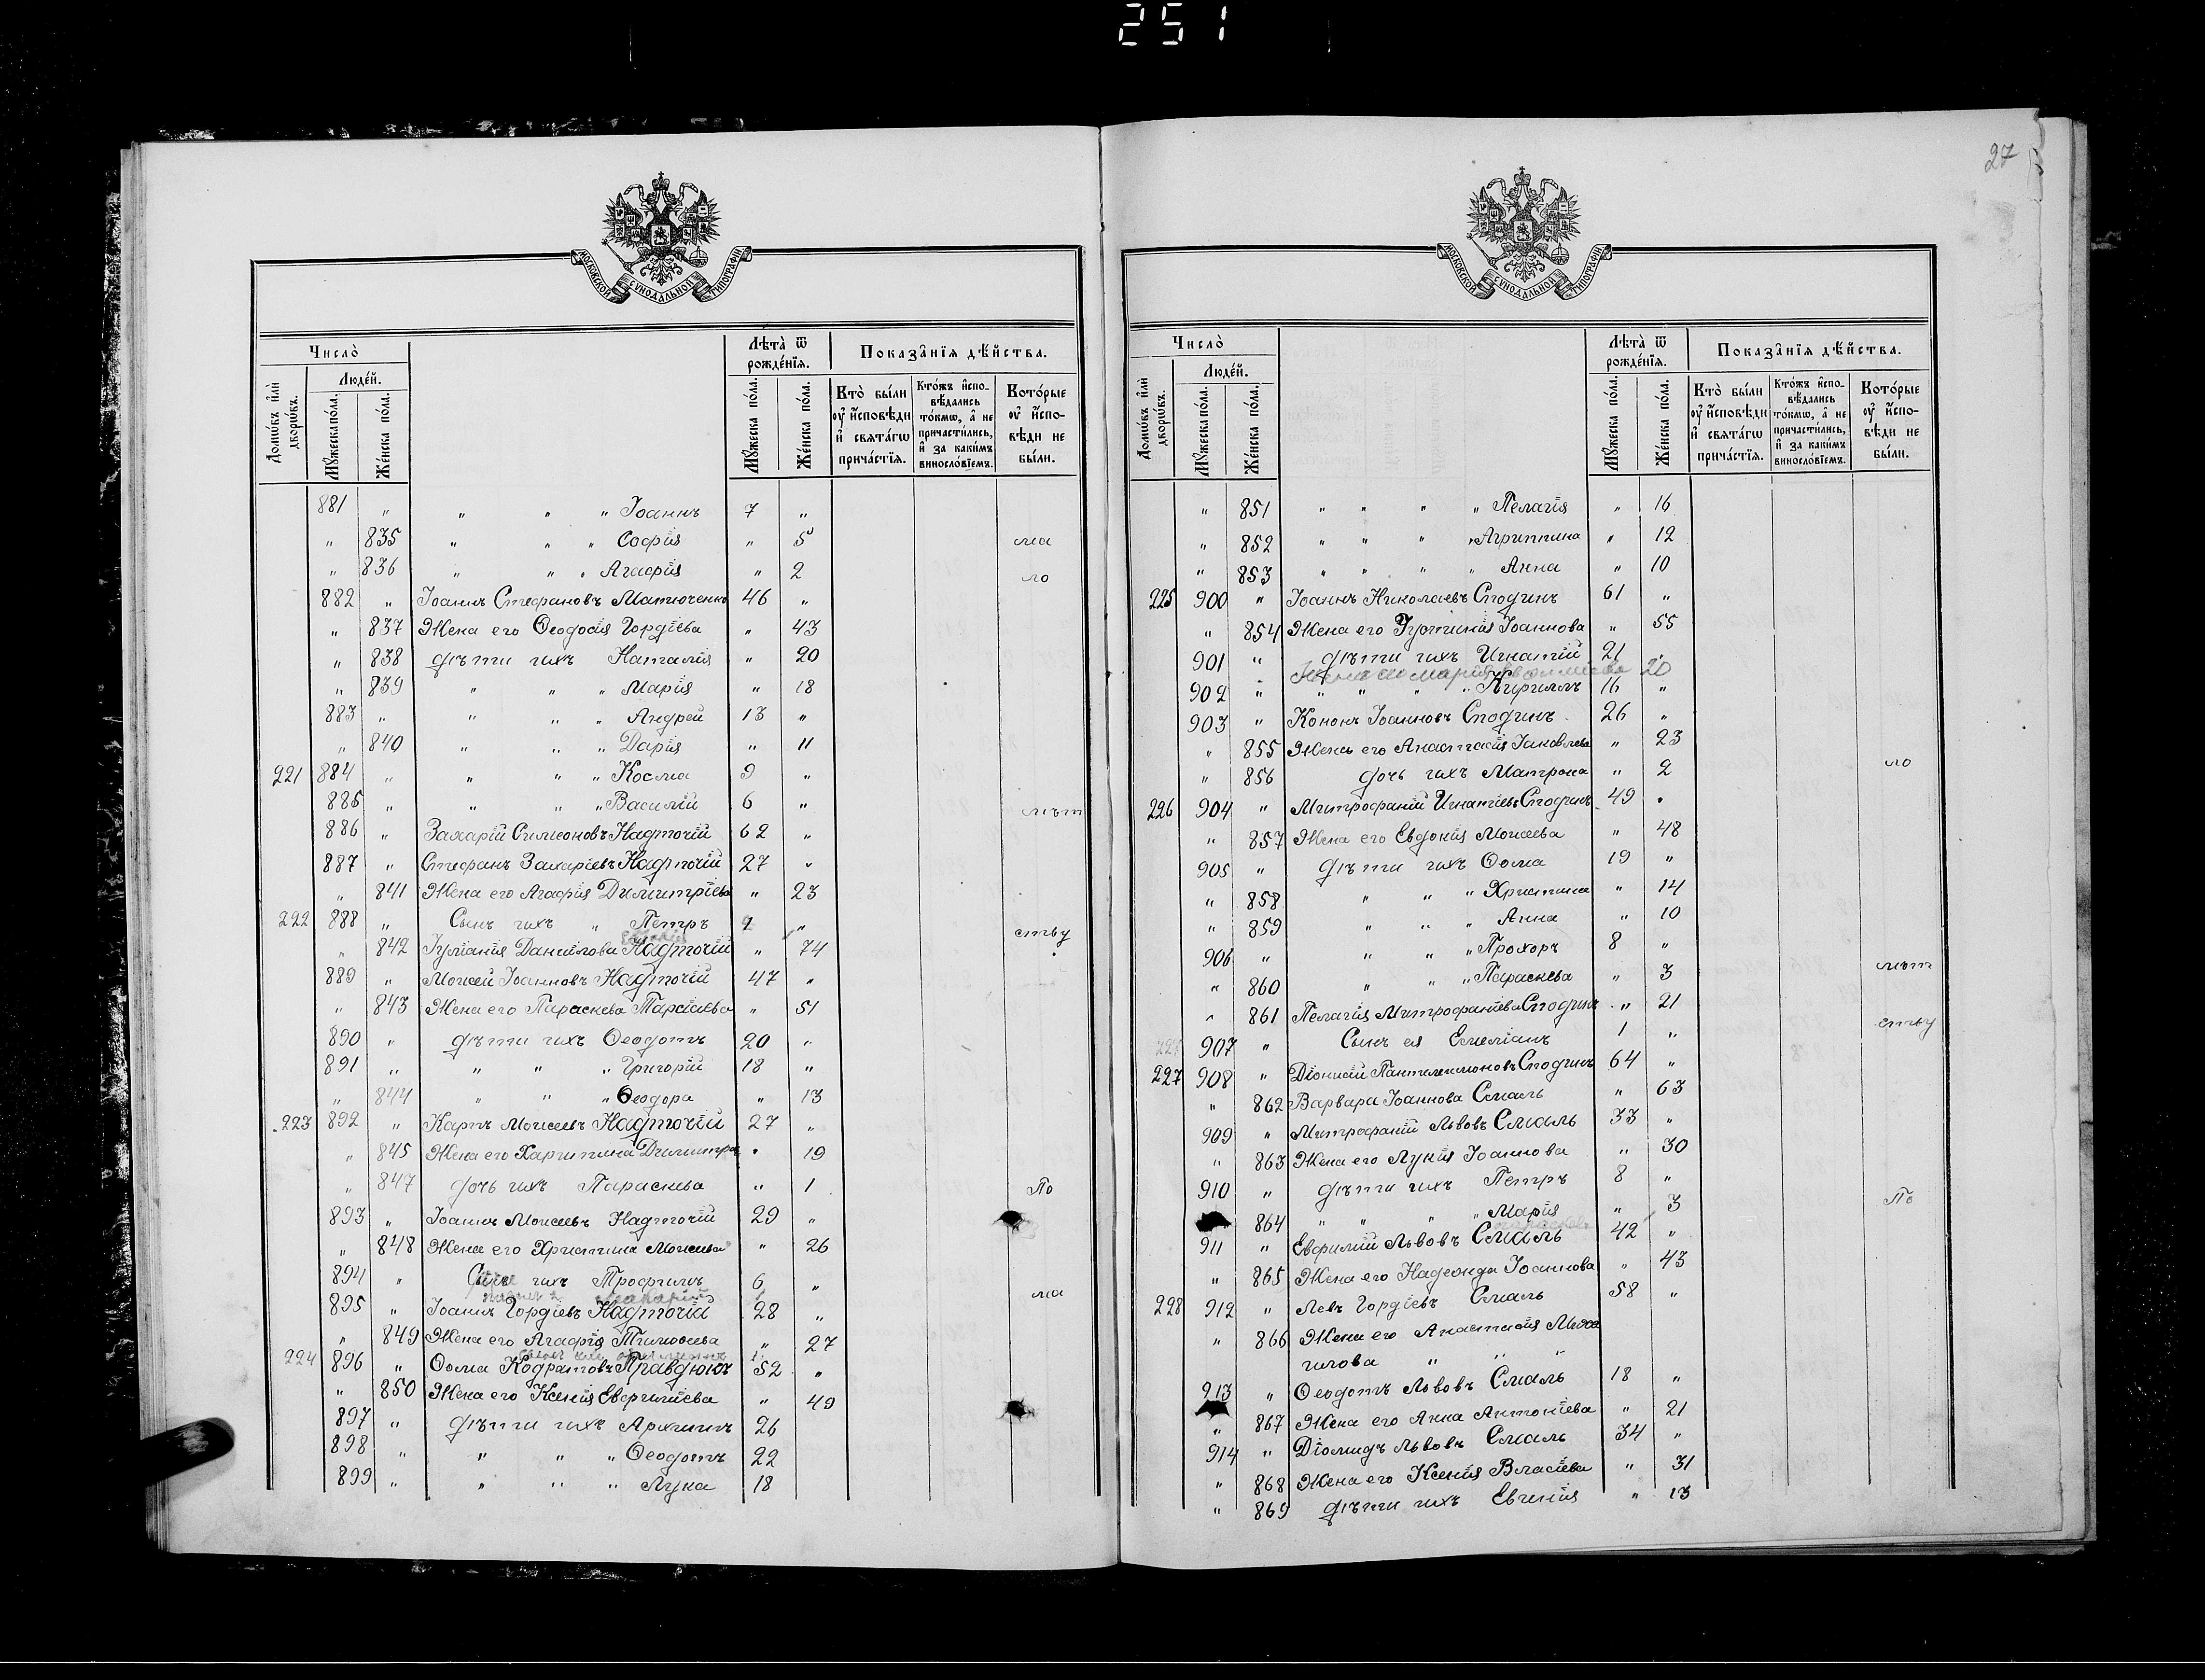 251
27
МОСКОВСКОЙ СѴНОДАЛЬНОЙ ТИПОГРАФІИ
Число̀
Лѣта̀ ѿ рожде́нїѧ.
Показа̑нїѧ дѣ́йства.
Домѡ́въ и҆лѝ дворѡ́въ.
Люде́й.
Мꙋ́жеска по́ла.
Же́нска по́ла.
Мꙋ́жеска по́ла.
Же́нска по́ла.
Кто̀ бы́ли ᲂу҆ и҆́сповѣди и҆ свѧта́гѡ прича́стїѧ.
Кто́жъ и҆сповѣ́дались то́кмѡ, а҆ не причасти́лись, и҆ за каки́мъ винослѡ́вїемъ.
Кото́рые ᲂу҆ и҆́сповѣди не бы́ли.
881 " " " " Іоаннъ 7 "
" 835 " " " Софія " 5 ма
" 836 " " " Агафія " 2 ло
882 " Іоаннъ Стефановъ Матюченко 46 "
" 837 Жена его Ѳеодосія Гордіева " 43
" 838 дѣти ихъ Наталія " 20
" 839 " " " Марія " 18
883 " " " " Андрей 13 "
" 840 " " " Дарія " 11
221 884 " " " " Косма 9 "
885 " " " " Василій 6 " лѣт
886 " Захарій Симеоновъ Надточій 62 "
887 " Стефанъ Захаріевъ Надточій 27 "
" 841 Жена его Агафія Димитріева " 23
222 888 " Сынъ ихъ " Петръ " ству
" 842 Іуліанія Даніилова Надточій " 74
889 " Моисей Іоанновъ Надточій 47 "
" 843 Жена его Параскева Тарасіева " 51
890 " дѣти ихъ Ѳеодотъ 20 "
891 " " " " Григорій 18 "
" 844 " " " Ѳеодора " 13
223 892 " Карпъ Моисеевъ Надточій 27 "
" 845 Жена его Харитина Димитр " 19
" 847 дочь ихъ Параскева " 1 По
893 " Іоаннъ Моисеевъ Надточій 29 "
" 848 Жена его Христина Моисеева " 26
894 " ихъ Трофимъ 6 "
Макарій
895 " Іоаннъ Гордіевъ Надточій 28 " ма
" 849 Жена его Агафія Тимоѳеева " 27
224 896 " Ѳома Кодратовъ Правдюкъ 52 "
" 850 Жена его Ксенія Евфиміева " 49
897 " дѣти ихъ Архипъ 26
898 " " " " Ѳеодотъ 22
899 " " " " Лука 18
МОСКОВСКОЙ СѴНОДАЛЬНОЙ ТИПОГРАФІИ
Число̀
Лѣта̀ ѿ рожде́нїѧ.
Показа̑нїѧ дѣ́йства.
Домѡ́въ и҆лѝ дворѡ́въ.
Люде́й.
Мꙋ́жеска по́ла.
Же́нска по́ла.
Мꙋ́жеска по́ла.
Же́нска по́ла.
Кто̀ бы́ли ᲂу҆ и҆́сповѣди и҆ свѧта́гѡ прича́стїѧ.
Кто́жъ и҆сповѣ́дались то́кмѡ, а҆ не причасти́лись, и҆ за каки́мъ винослѡ́вїемъ.
Кото́рые ᲂу҆ и҆́сповѣди не бы́ли.
" 851 " " " " Пелагія " 16
" 852 " " " " Агриппина " 12
" 853 " " " " Анна " 10
225 900 " Іоаннъ Николаевъ Сподинъ 61 "
" 854 Жена его Іустинія Іоаннова " 55
901 " дѣти ихъ Игнатій 21 "
Жена его Марія 20
902 " " " " " Кириллъ 16 "
903 " Кононъ Іоанновъ Сподинъ 26 "
" 855 Жена его Анастасія Іаковлева " 23
" 856 дочь ихъ Матрона " 2 ло
226 904 " Митрофаній Игнатіевъ Сподинъ 49 "
" 857 Жена его Евдокія Моисеева " 48
905 " дѣти ихъ Ѳома 19 "
" 858 " " " Христина " 14
" 859 " " " Анна " 10
906 " " " " Прохоръ 8 "
" 860 " " " Параскева " 3 лѣт
" 861 Пелагія Митрофаніева Сподинъ " 21
907 " Сынъ ея Емеліанъ 1 " ству
227 908 " Діонисій Пантилеимоновъ Сподинъ 64 "
" 862 Варвара Іоаннова Смаль " 63
909 " Митрофаній Львовъ Смаль 33 "
" 863 Жена его Лукія Іоаннова " 30
910 " дѣти ихъ Петръ 8 "
864 " " " " Марія " 3 По
911 " Евфимій Львовъ Смаль 42 "
" 865 Жена его Надежда Іоаннова " 43
228 912 " Левъ Гордіевъ Смаль 58 "
" 866 Жена его Анастасія Миха
илова " " "
913 " Ѳеодотъ Львовъ Смаль 18 "
" 867 Жена его Анна Антоніева " 21
914 " Діомидъ Львовъ Смаль 34 "
" 868 Жена его Ксенія Власіева " 31
" 869 дѣти ихъ Евгенія " 13